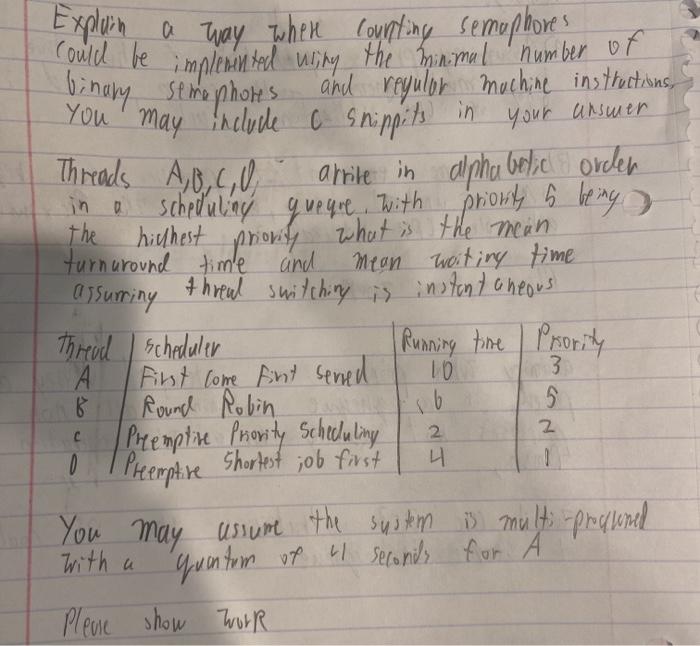 Explain a way where Counting semaphores
Could be implemented using the minimal number of
binary semaphores and regular machine instructions.
You may include C snippits in your answer
Threads A,B,C,D, arrive in alphabetic order
in a scheduling queque. with priority 5 being
the highest priority what is the mean
turnaround time and mean waiting time
assuming thread switching is instantaneous
Thread Scheduler Running time Priority
A First Come First Served 10 3
B Round Robin 6 5
C Preemptive Priority Scheduling 2 2
D Preemptive Shortest job first 4 1
You may assume the system is
with a quantum of 4 seconds for A
Please show work